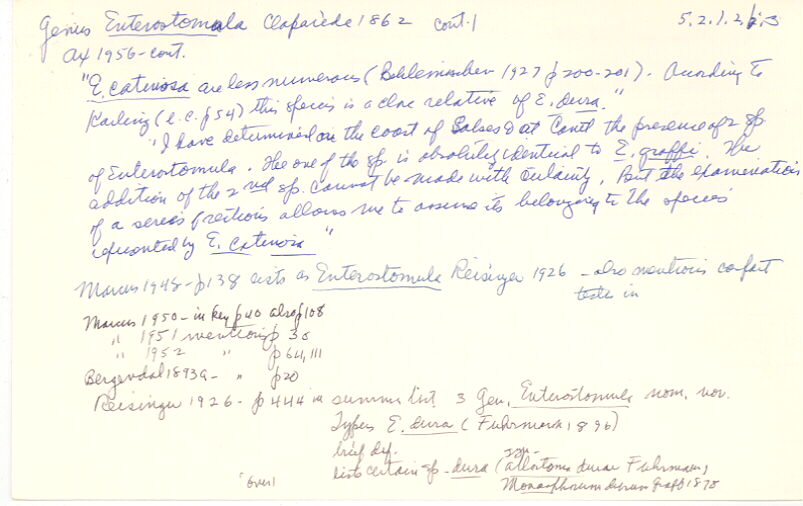 Genus Enterostomula Claparède 1862 cont.1 5.2.1.2.3
Ax 1956-cont.
"E. catinosa are less numerous (Beklemischev 1927 p 200-201). According to
Karling (l.c. p 54) this species is a close relative of E. dura."
"I have determined on the coast of Salses & at Canet the presence of 2 sp.
of Enterostomula. The one of the sp. is absolutely identical to E. graffi. The
addition of the 2nd sp. cannot be made with certainty, But the examination
of a series of sections allows me to assume its belonging to the species
represented by E. catinosa"
Marcus 1948-p 138 lists as Enterostomula Reisinger 1926 - also mentions compact
testes in
Marcus 1950-in key p 40 also p 108
" 1951 mentions p 30
" 1952 " p 64, 111
Bergendal 1893a- " p 20
Reisinger 1926- p 444 in summer list 3 Gen. Enterostomula nom. nov.
Types E. dura (Fuhrmann 1896)
brief def.
lists certain sp - dura (syn- allostoma durum Fuhrmann,
Monoophorum durum Graff 1878
(over)